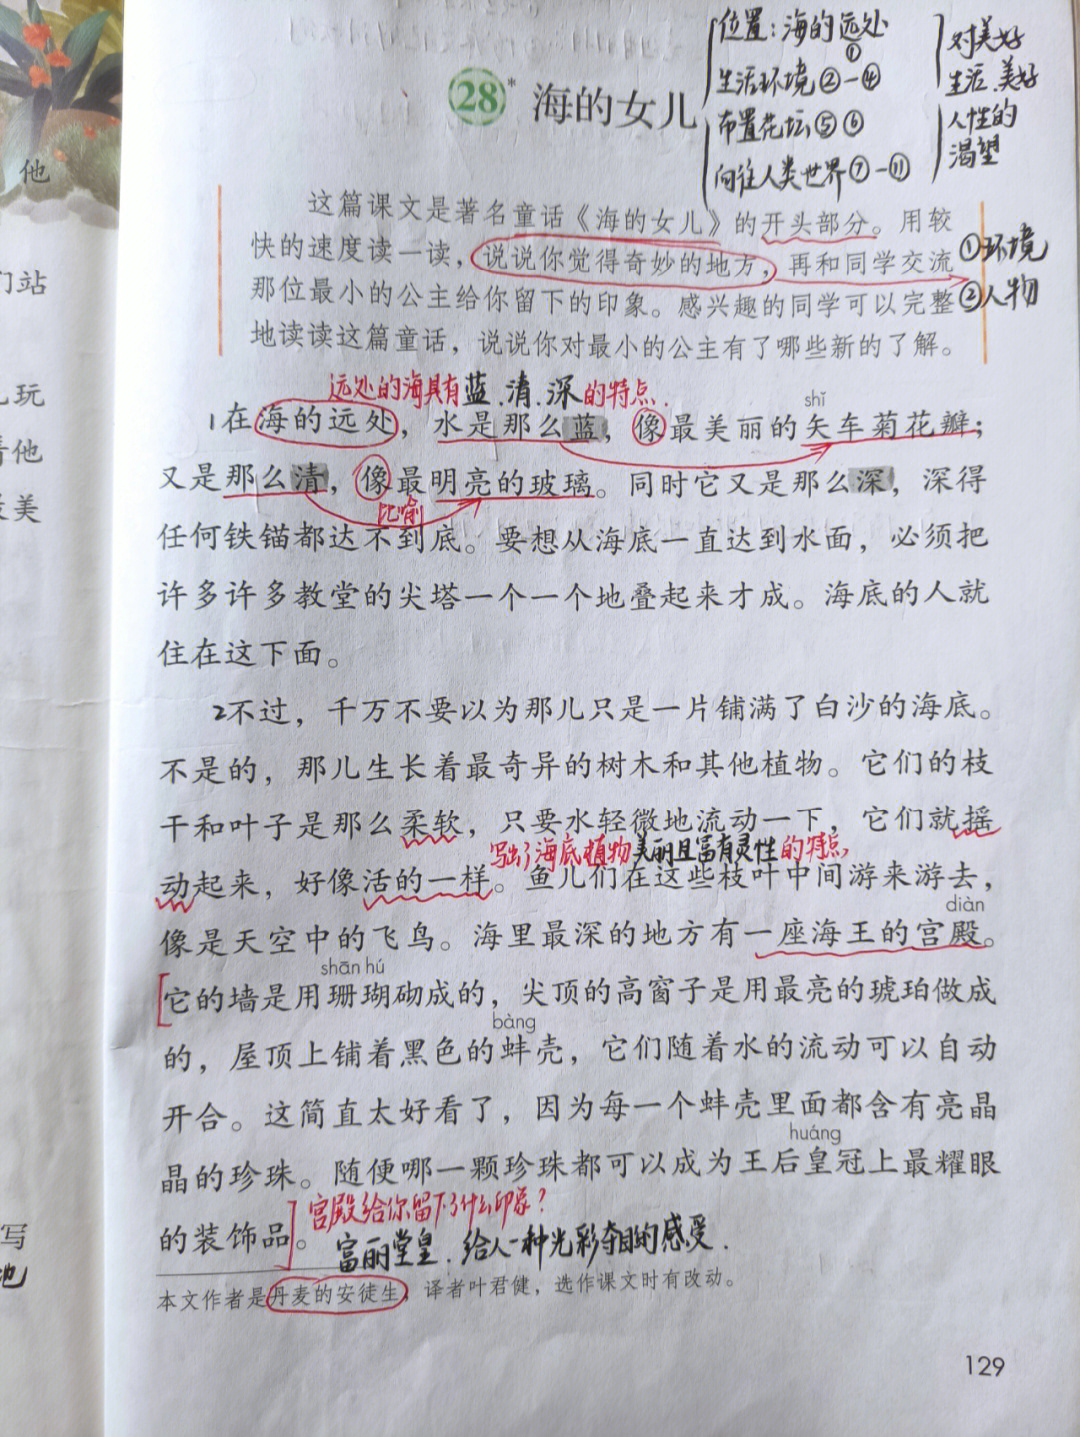 位置：海的远处
①
生活环境②—④
布置花坛⑤⑥
向往人类世界⑦—⑪
对美好
生活、美好
人性的
渴望
28* 海的女儿
他
们站
玩
着他
美
写
地
这篇课文是著名童话《海的女儿》的开头部分。用较
快的速度读一读，说说你觉得奇妙的地方，再和同学交流
那位最小的公主给你留下的印象。感兴趣的同学可以完整
地读读这篇童话，说说你对最小的公主有了哪些新的了解。
①环境
②人物
远处的海具有蓝、清、深的特点.
shǐ
1在海的远处，水是那么蓝，像最美丽的矢车菊花瓣；
又是那么清，像最明亮的玻璃。同时它又是那么深，深得
比喻
任何铁锚都达不到底。要想从海底一直达到水面，必须把
许多许多教堂的尖塔一个一个地叠起来才成。海底的人就
住在这下面。
2不过，千万不要以为那儿只是一片铺满了白沙的海底。
不是的，那儿生长着最奇异的树木和其他植物。它们的枝
干和叶子是那么柔软，只要水轻微地流动一下，它们就摇
写出了海底植物美丽且富有灵性的特点
动起来，好像活的一样。鱼儿们在这些枝叶中间游来游去，
diàn
像是天空中的飞鸟。海里最深的地方有一座海王的宫殿。
shān hú
它的墙是用珊瑚砌成的，尖顶的高窗子是用最亮的琥珀做成
bàng
的，屋顶上铺着黑色的蚌壳，它们随着水的流动可以自动
开合。这简直太好看了，因为每一个蚌壳里面都含有亮晶
huáng
晶的珍珠。随便哪一颗珍珠都可以成为王后皇冠上最耀眼
宫殿给你留下了什么印象？
的装饰品。
富丽堂皇、给人一种光彩夺目的感受.
本文作者是丹麦的安徒生，译者叶君健，选作课文时有改动。
129